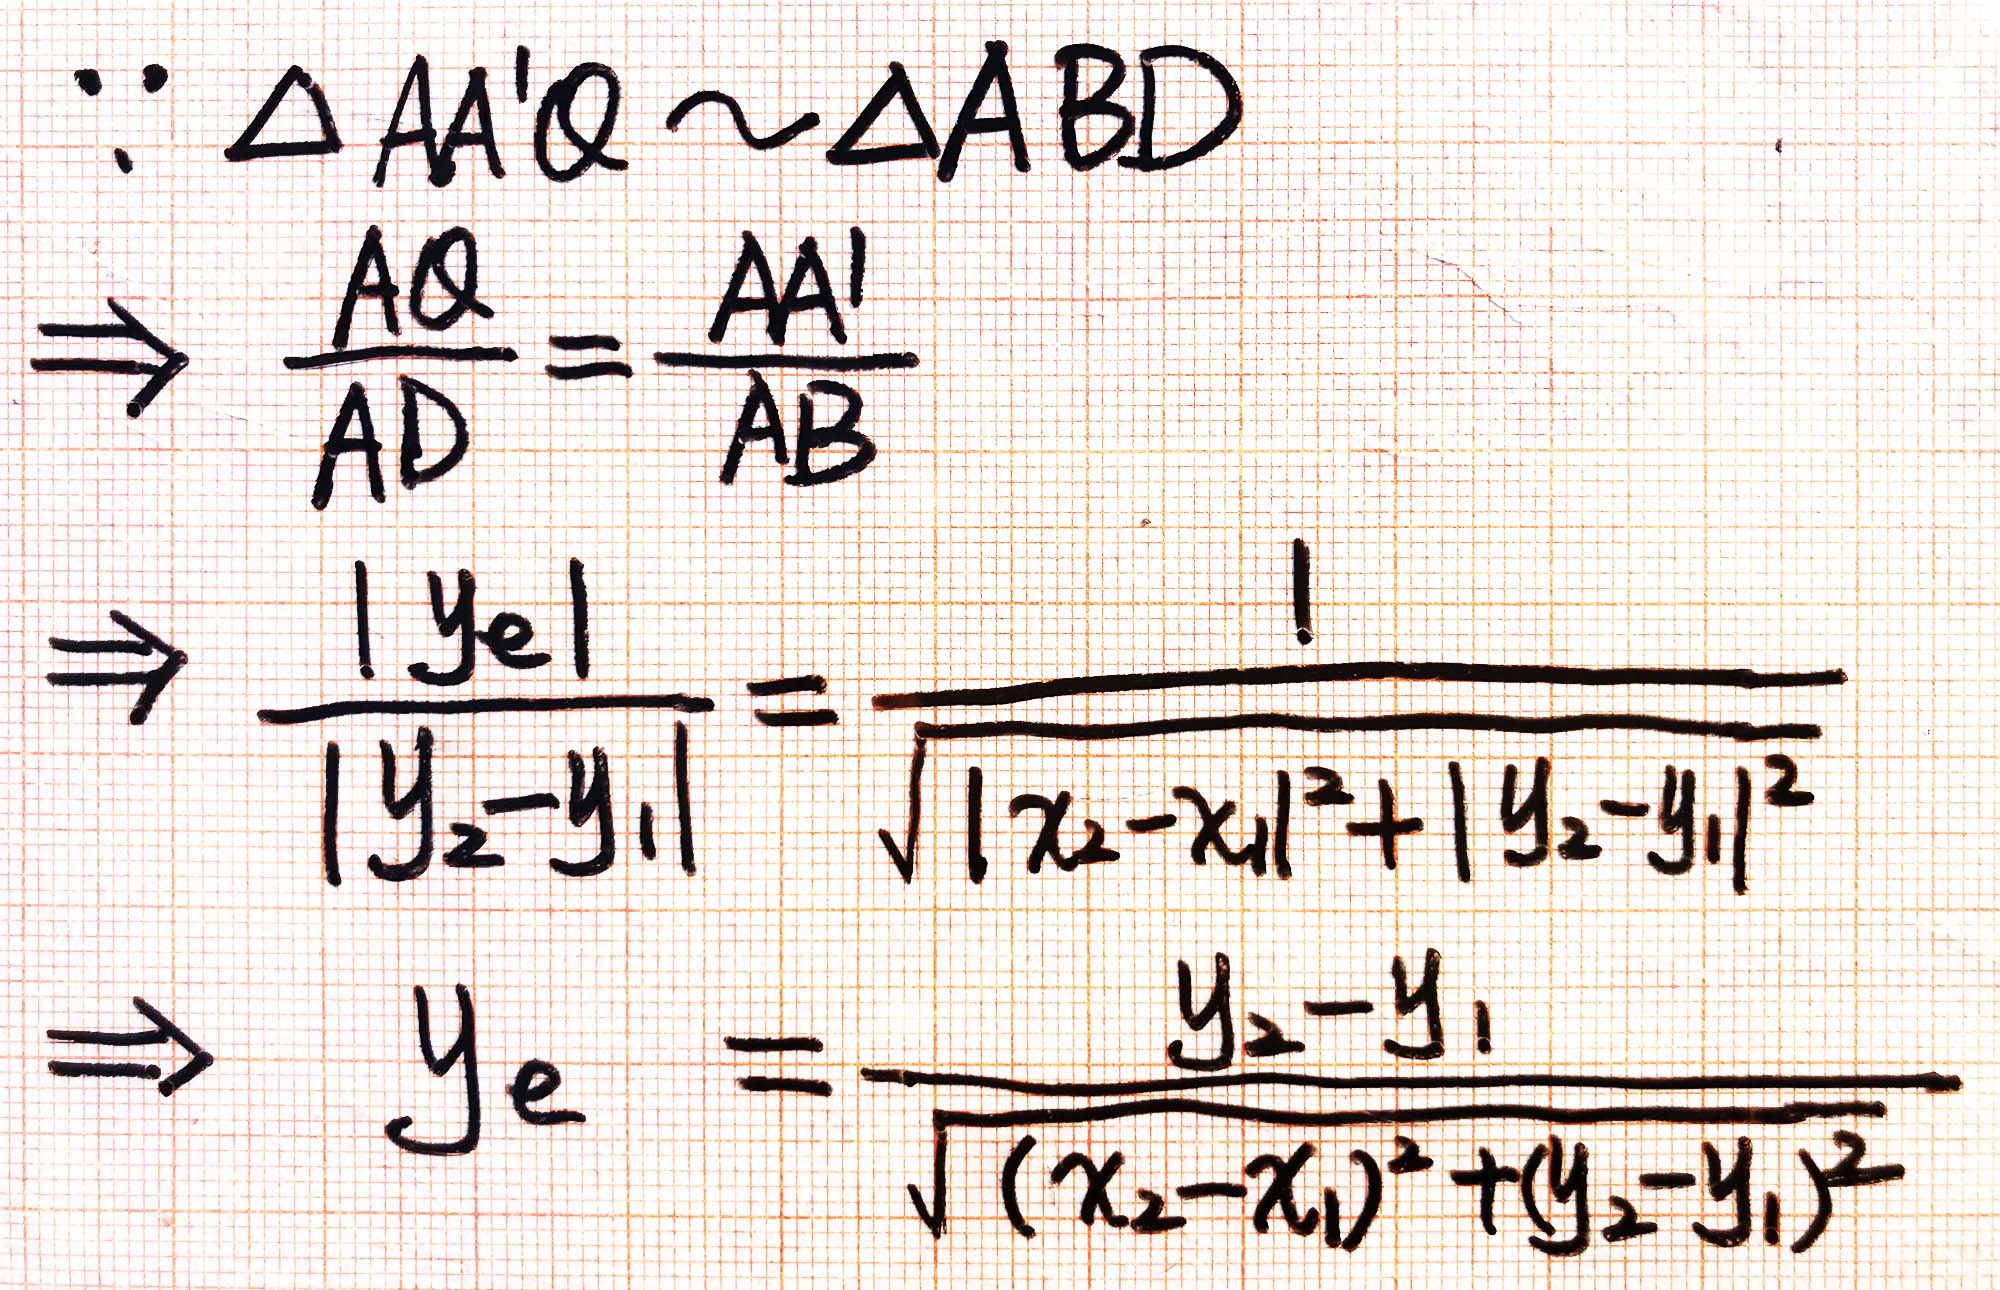 ∵ △AA'Q ~ △ABD
⇒ AQ/AD = AA'/AB
⇒ |yₑ|/|y₂-y₁| = 1/√(|x₂-x₁|²+|y₂-y₁|²)
⇒ yₑ = (y₂-y₁)/√((x₂-x₁)²+(y₂-y₁)²)